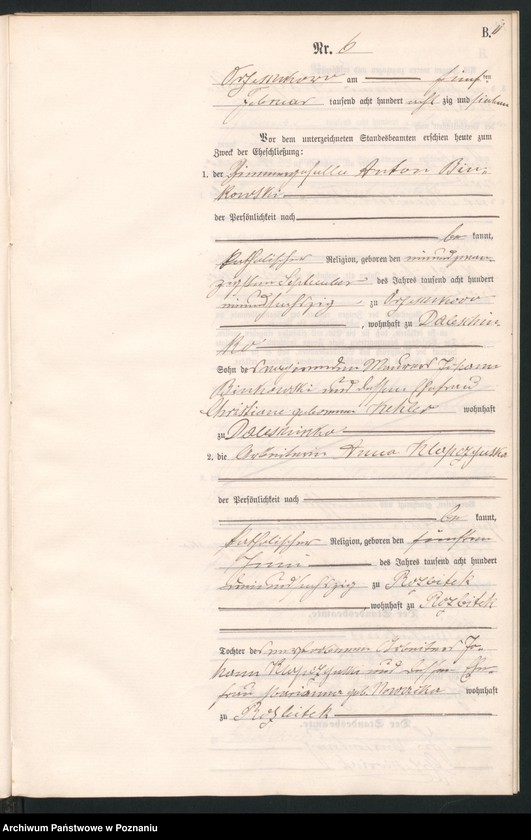 B.
Nr. 6
Orzeszkowo am fünf ten
Februar tausend acht hundert acht zig und sieben
Vor dem unterzeichneten Standesbeamten erschien heute zum
Zweck der Eheschließung:
1. der Zimmergeselle Anton Bin-
kowski
der Persönlichkeit nach
be kannt,
katholischer Religion, geboren den neunundzwan-
zigsten September des Jahres tausend acht hundert
neunundsechzig zu Orzeszkowo
, wohnhaft zu Daleszin-
ko
Sohn des Maurers Johann
Binkowski und dessen Ehefrau
Christiane geborenen Kekler wohnhaft
zu Daleszinko
2. die Arbeiterin Anna Klopczynska
der Persönlichkeit nach
be kannt,
katholischer Religion, geboren den fünften
Juni des Jahres tausend acht hundert
sechzig zu Rozbitek
, wohnhaft zu Rozbitek
Tochter des verstorbenen Arbeiters Jo-
hann Klopczynski und dessen Ehe-
frau Marianna geb. Nowczika wohnhaft
zu Rozbitek
Archiwum Państwowe w Poznaniu